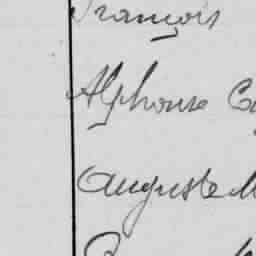 François
Alphonse
Auguste